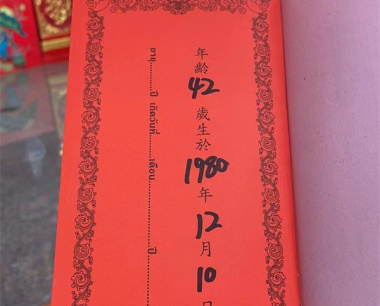 年齡 42 歲生於 1980 年 12 月 10 日
อายุ........ปี เกิดวันที่........เดือน........ปี